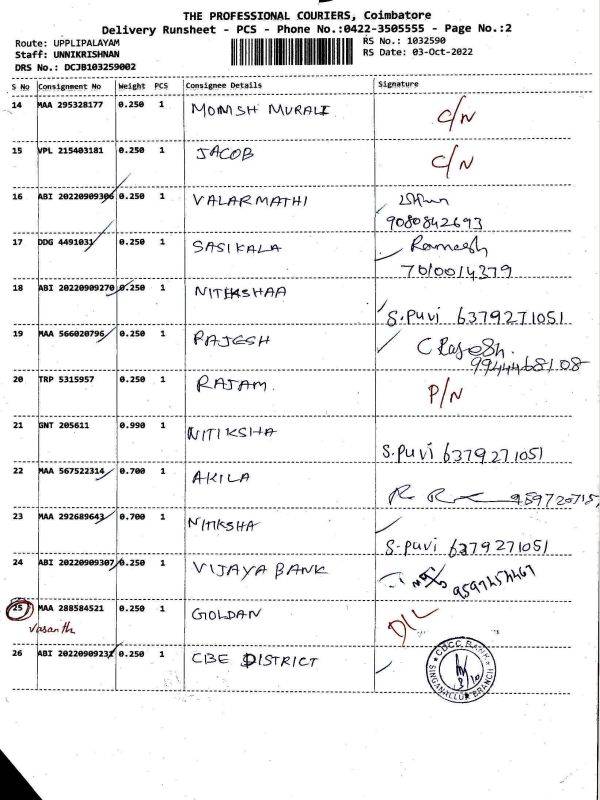 THE PROFESSIONAL COURIERS, Coimbatore
Delivery Runsheet - PCS - Phone No.:0422-3505555 - Page No.:2
Route: UPPLIPALAYAM
RS No.: 1032590
Staff: UNNIKRISHNAN
RS Date: 03-Oct-2022
DRS No.: DCJB103259002
S No Consignment No Weight PCS Consignee Details Signature
14 MAA 295328177 0.250 1 MONISH MURALI C/N
15 VPL 215403181 0.250 1 JACOB C/N
16 ABI 20220909306 0.250 1 VALARMATHI
9080842693
17 DDG 4491031 0.250 1 SASIKALA Ramesh
7010014379
18 ABI 20220909270 0.250 1 NITIKSHAA
S.Puvi 6379271051
19 MAA 566020796 0.250 1 RAJESH C Rajesh.
9944468108
20 TRP 5315957 0.250 1 RAJAM. P/N
21 GNT 205611 0.990 1 NITIKSHA
S.Puvi 6379271051
22 MAA 567522314 0.700 1 AKILA
23 MAA 292689643 0.700 1 NITIKSHA
S-Puvi 6379271051
24 ABI 20220909307 0.250 1 VIJAYA BANK
25 MAA 288584521 0.250 1 GOLDAN D/L
Vasanth
26 ABI 2022090923 0.250 1 CBE DISTRICT
CDCC BANK
SINGANALLUR BRANCH